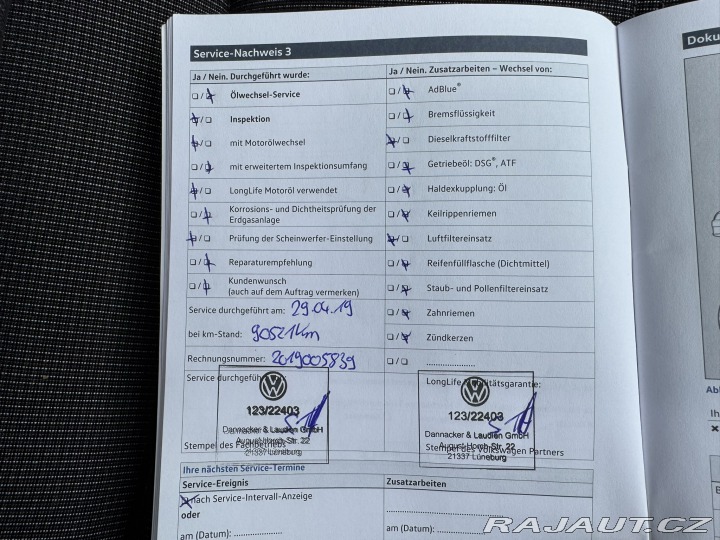 Service-Nachweis 3
Ja / Nein. Durchgeführt wurde:
Ölwechsel-Service
Inspektion
mit Motorölwechsel
mit erweitertem Inspektionsumfang
LongLife Motoröl verwendet
Korrosions- und Dichtheitsprüfung der
Erdgasanlage
Prüfung der Scheinwerfer-Einstellung
Reparaturempfehlung
Kundenwunsch
(auch auf dem Auftrag vermerken)
Service durchgeführt am: 29.04.19
bei km-Stand: 90521km
Rechnungsnummer: 2019005839
Service durchgeführt
123/22403
Dannacker & Laudien GmbH
August-Horch-Str. 22
21337 Lüneburg
Stempel des Fachbetriebs
Ja / Nein. Zusatzarbeiten – Wechsel von:
AdBlue®
Bremsflüssigkeit
Dieselkraftstofffilter
Getriebeöl: DSG®, ATF
Haldexkupplung: Öl
Keilrippenriemen
Luftfiltereinsatz
Reifenfüllflasche (Dichtmittel)
Staub- und Pollenfiltereinsatz
Zahnriemen
Zündkerzen
LongLife Mobilitätsgarantie:
123/22403
Dannacker & Laudien GmbH
August-Horch-Str. 22
21337 Lüneburg
Stempel des Volkswagen Partners
Ihre nächsten Service-Termine
Service-Ereignis
nach Service-Intervall-Anzeige
oder
am (Datum):
Zusatzarbeiten
am (Datum):
Doku
Ab
Ih
RAJAUT.CZ